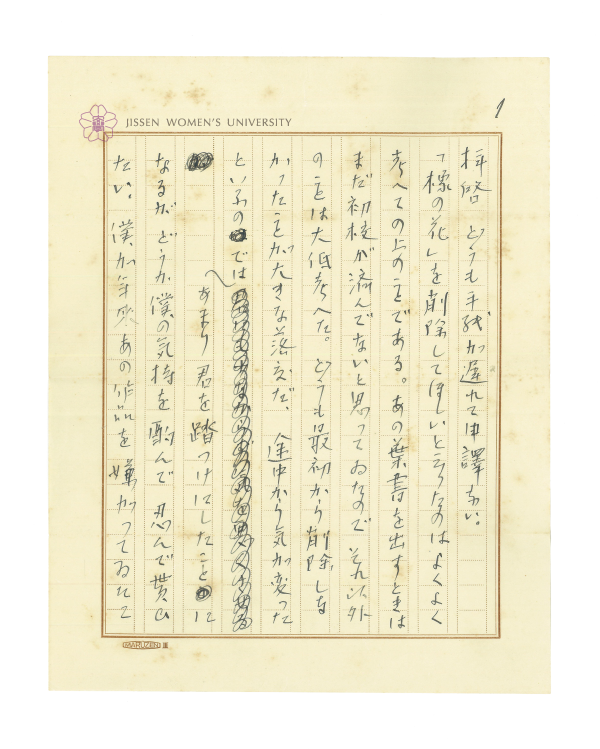 1
JISSEN WOMEN'S UNIVERSITY
拝啓 どうも手紙が遅れて申譯ない。
「檪の花」を削除してほしいと云つたのはよくよく
考へての上のことである。あの葉書を出すときは
まだ初校が済んでないと思ってゐたので それ以外
のことは大低考へた。どうも最初から削除しな
かつたことが大きな落度だ、途中から気が変つた
といふのでは
あまり君を踏つけにしたことに
なるが どうか僕の気持を酌んで 忍んで貰ひ
たい。僕が年来あの作品を嫌がつてゐたこ
MARUZEN